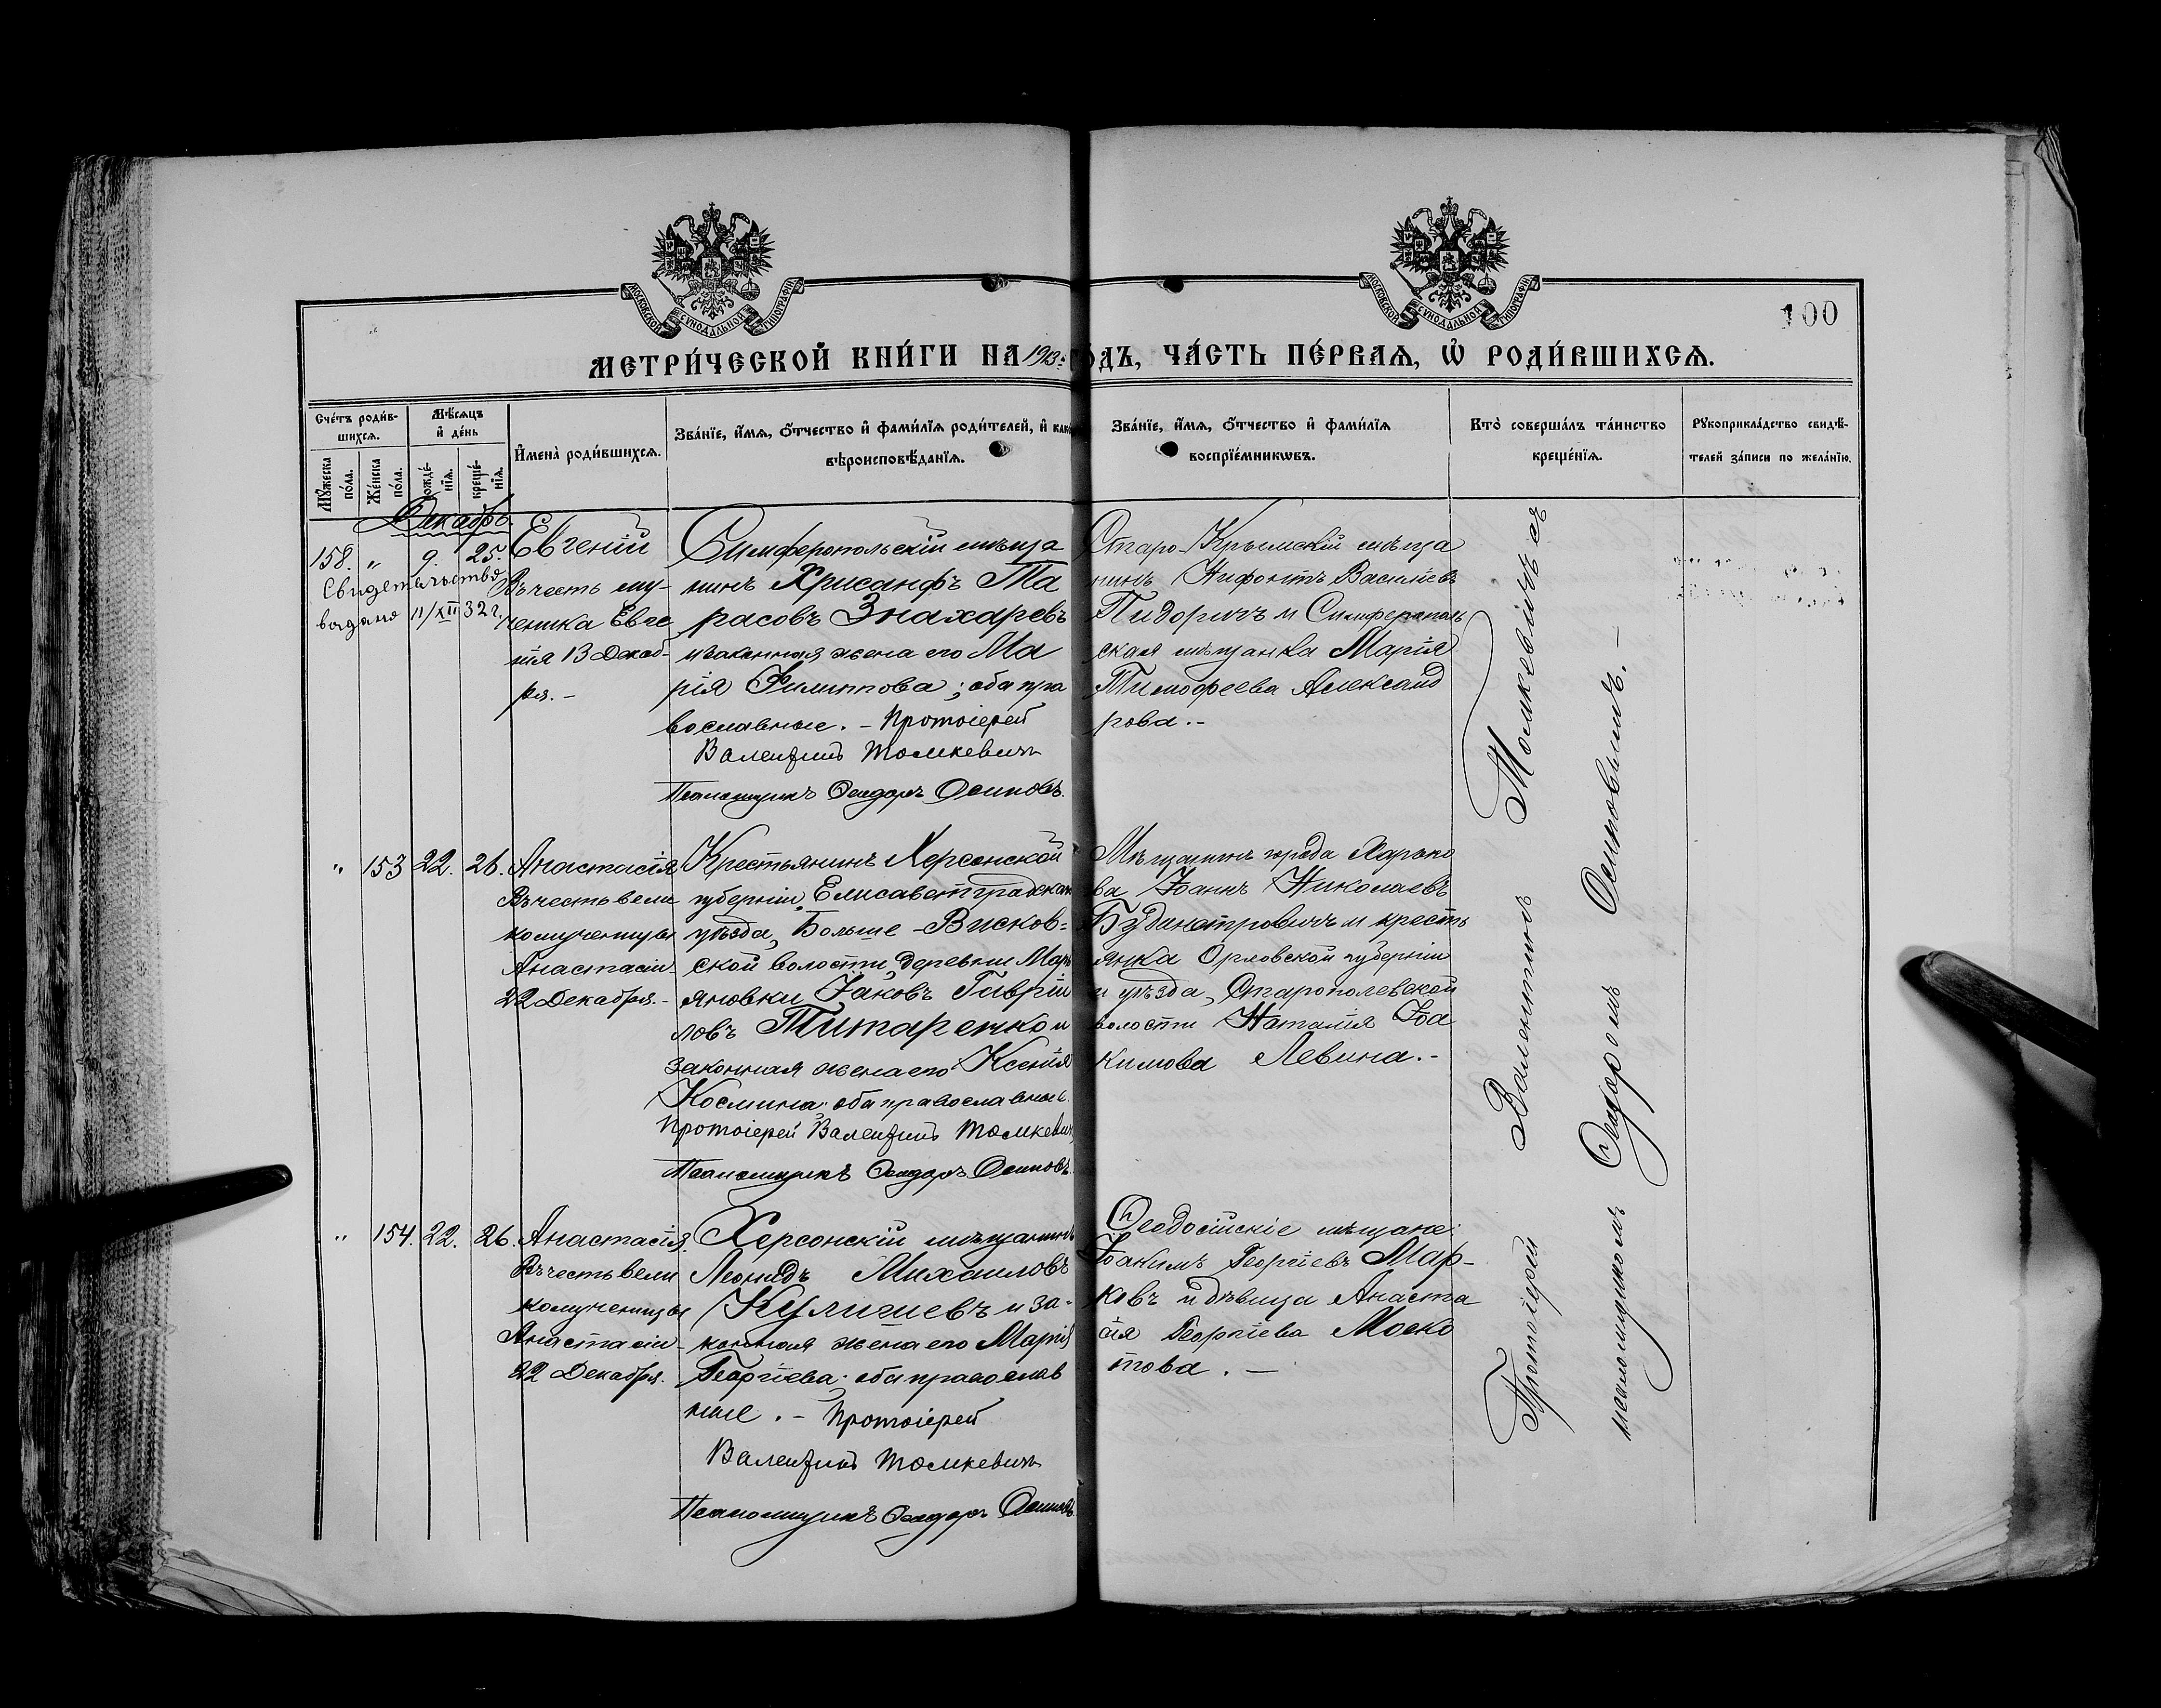 МОСКОВСКОЙ СѴНОДАЛЬНОЙ ТИПОГРАФІИ
МОСКОВСКОЙ СѴНОДАЛЬНОЙ ТИПОГРАФІИ
100
МЕТРИ́ЧЕСКОЙ КНИ́ГИ НА 1913 г. ОДЪ, ЧА́СТЬ ПЕ́РВАѦ, Ѽ РОДИ́ВШИХСѦ.
Сче́тъ роди́в-
шихсѧ.
Мѣ́сѧцъ
и҆ де́нь
Мꙋ́жеска по́ла.
Же́нска по́ла.
рожде́-нїѧ.
креще́-нїѧ.
И҆мена̀ роди́вшихсѧ.
Зва́нїе, и҆́мѧ, ѻ҆́тчество и҆ фами́лїѧ роди́телей, и҆ како
вѣроисповѣ́данїѧ.
Зва́нїе, и҆́мѧ, ѻ҆́тчество и҆ фами́лїѧ
воспрїе́мникѡвъ.
Кто̀ соверша́лъ та́инство
креще́нїѧ.
Рꙋкоприкла́дство свидѣ́-
телей за́писи по жела́нїю.
Декабрь
158. " 9. 25.
Свидетельство
выдано 11/XII 32 г.
Евгеній
Въ честь му-
ченика Евге
нія 13 Декаб-
ря. -
Симферопольскій мѣща
нинъ Хрисанфъ Та
расовъ Знахаревъ
и законная жена его Ма
рія Филиппова; оба пра
вославные. - Протоіерей
Валентинъ Томкевичъ
Псаломщикъ Ѳеодоръ Осиповъ.
Старо-Крымскій мѣща
нинъ Нифонтъ Васильевъ
Пидоричъ и Симферополь
ская мѣщанка Марія
Тимофеева Александ
рова. -
" 153 22. 26.
Анастасія
Въ честь вели
комученицы
Анастасіи
22 Декабря. -
Крестьянинъ Херсонской
губерніи, Елисаветградскаго
уѣзда, Больше-Висков-
ской волости, деревни Марь
яновки Іаковъ Гавріи
ловъ Титаренко и
законная жена его Ксенія
Космина; оба православные.
Протоіерей Валентинъ Томкевичъ
Псаломщикъ Ѳеодоръ Осиповъ.
Мѣщанинъ города Харько
ва Іоаннъ Николаевъ
и кресть
янка Орловской губерніи
и уѣзда, Старополевской
волости Наталія Іоа
кимова Левина. -
" 154. 22. 26.
Анастасія.
Въ честь вели
комученицы
Анастасіи
22 Декабря.
Херсонскій мѣщанинъ
Леонидъ Михаиловъ
Куличиевъ и за-
конная жена его Марія
Георгіева; оба православ
ные. - Протоіерей
Валентинъ Томкевичъ
Псаломщикъ Ѳеодоръ Осиповъ
Ѳеодосійскіе мѣщане:
Іоакимъ Георгіевъ Мар-
ковъ и дѣвица Анаста
сія Георгіева Моско
това. -
Протоіерей Валентинъ Томкевичъ съ
псаломщикомъ Ѳеодоромъ Осиповымъ. -